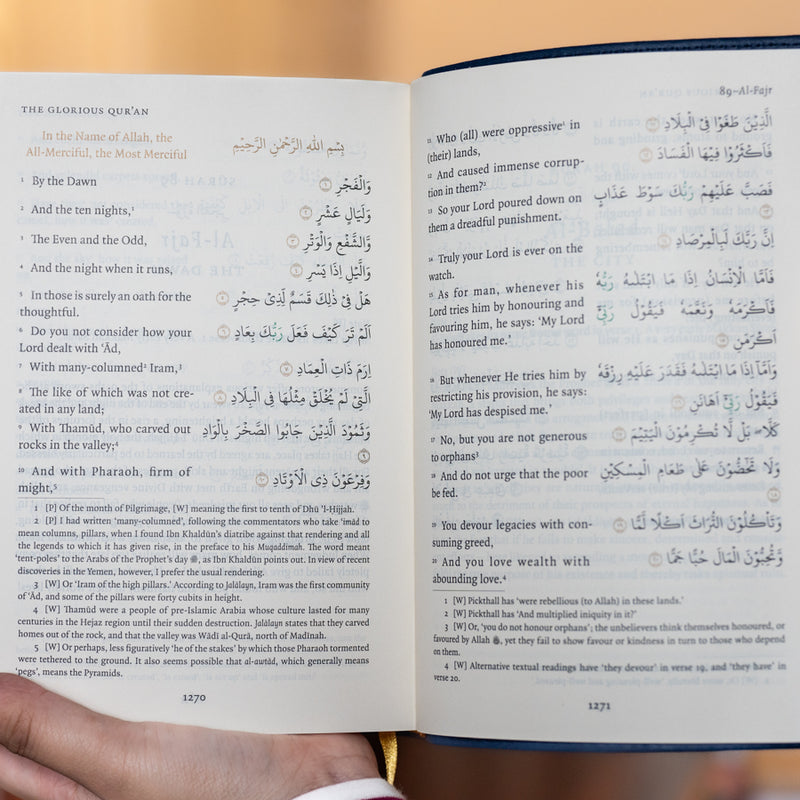 THE GLORIOUS QUR'AN
In the Name of Allah, the
All-Merciful, the Most Merciful
بِسْمِ اللّٰهِ الرَّحْمٰنِ الرَّحِيْمِ
1 By the Dawn
وَالْفَجْرِ ١
2 And the ten nights,¹
وَلَيَالٍ عَشْرٍ ٢
3 The Even and the Odd,
وَّالشَّفْعِ وَالْوَتْرِ ٣
4 And the night when it runs,
وَالَّيْلِ اِذَا يَسْرِ ٤
5 In those is surely an oath for the
thoughtful.
هَلْ فِيْ ذٰلِكَ قَسَمٌ لِّذِيْ حِجْرٍ ٥
6 Do you not consider how your
Lord dealt with ‘Ād,
اَلَمْ تَرَ كَيْفَ فَعَلَ رَبُّكَ بِعَادٍ ٦
7 With many-columned² Iram,³
اِرَمَ ذَاتِ الْعِمَادِ ٧
8 The like of which was not cre-
ated in any land;
الَّتِيْ لَمْ يُخْلَقْ مِثْلُهَا فِي الْبِلَادِ ٨
9 With Thamūd, who carved out
rocks in the valley;⁴
وَثَمُوْدَ الَّذِيْنَ جَابُوا الصَّخْرَ بِالْوَادِ
٩
10 And with Pharaoh, firm of
might,⁵
وَفِرْعَوْنَ ذِي الْاَوْتَادِ ١٠
1 [P] Of the month of Pilgrimage, [W] meaning the first to tenth of Dhū ’l-Ḥijjah.
2 [P] I had written ‘many-columned’, following the commentators who take ‘imād to
mean columns, pillars, when I found Ibn Khaldūn’s diatribe against that rendering and all
the legends to which it has given rise, in the preface to his Muqaddimah. The word meant
‘tent-poles’ to the Arabs of the Prophet’s day ﷺ, as Ibn Khaldūn points out. In view of recent
discoveries in the Yemen, however, I prefer the usual rendering.
3 [W] Or ‘Iram of the high pillars.’ According to Jalālayn, Iram was the first community
of ‘Ād, and some of the pillars were forty cubits in height.
4 [W] Thamūd were a people of pre-Islamic Arabia whose culture lasted for many
centuries in the Hejaz region until their sudden destruction. Jalālayn states that they carved
homes out of the rock, and that the valley was Wādī al-Qurā, north of Madīnah.
5 [W] Or perhaps, less figuratively ‘he of the stakes’ by which those Pharaoh tormented
were tethered to the ground. It also seems possible that al-awtād, which generally means
‘pegs’, means the Pyramids.
1270
89–Al-Fajr
11 Who (all) were oppressive¹ in
(their) lands,
الَّذِيْنَ طَغَوْا فِي الْبِلَادِ ١١
12 And caused immense corrup-
tion in them?²
فَاَكْثَرُوْا فِيْهَا الْفَسَادَ ١٢
13 So your Lord poured down on
them a dreadful punishment.
فَصَبَّ عَلَيْهِمْ رَبُّكَ سَوْطَ عَذَابٍ
١٣
14 Truly your Lord is ever on the
watch.
اِنَّ رَبَّكَ لَبِالْمِرْصَادِ ١٤
15 As for man, whenever his
Lord tries him by honouring and
favouring him, he says: ‘My Lord
has honoured me.’
فَاَمَّا الْاِنْسَانُ اِذَا مَا ابْتَلٰىهُ رَبُّهٗ
فَاَكْرَمَهٗ وَنَعَّمَهٗ فَيَقُوْلُ رَبِّيْٓ
اَكْرَمَنِ ١٥
16 But whenever He tries him by
restricting his provision, he says:
‘My Lord has despised me.’
وَاَمَّآ اِذَا مَا ابْتَلٰىهُ فَقَدَرَ عَلَيْهِ رِزْقَهٗ
فَيَقُوْلُ رَبِّيْٓ اَهَانَنِ ١٦
17 No, but you are not generous
to orphans³
كَلَّا بَلْ لَّا تُكْرِمُوْنَ الْيَتِيْمَ ١٧
18 And do not urge that the poor
be fed.
وَلَا تَحٰٓضُّوْنَ عَلٰى طَعَامِ الْمِسْكِيْنِ
١٨
19 You devour legacies with con-
suming greed,
وَتَاْكُلُوْنَ التُّرَاثَ اَكْلًا لَّمًّا ١٩
20 And you love wealth with
abounding love.⁴
وَّتُحِبُّوْنَ الْمَالَ حُبًّا جَمًّا ٢٠
1 [W] Pickthall has ‘were rebellious (to Allah) in these lands.’
2 [W] Pickthall ‘And multiplied iniquity in it?’
3 [W] Or, ‘you do not honour orphans’; the unbelievers think themselves honoured, or
favoured by Allah ﷻ, yet they fail to show favour or kindness in turn to those who depend
on them.
4 [W] Alternative textual readings have ‘they devour’ in verse 19, and ‘they have’ in
verse 20.
1271